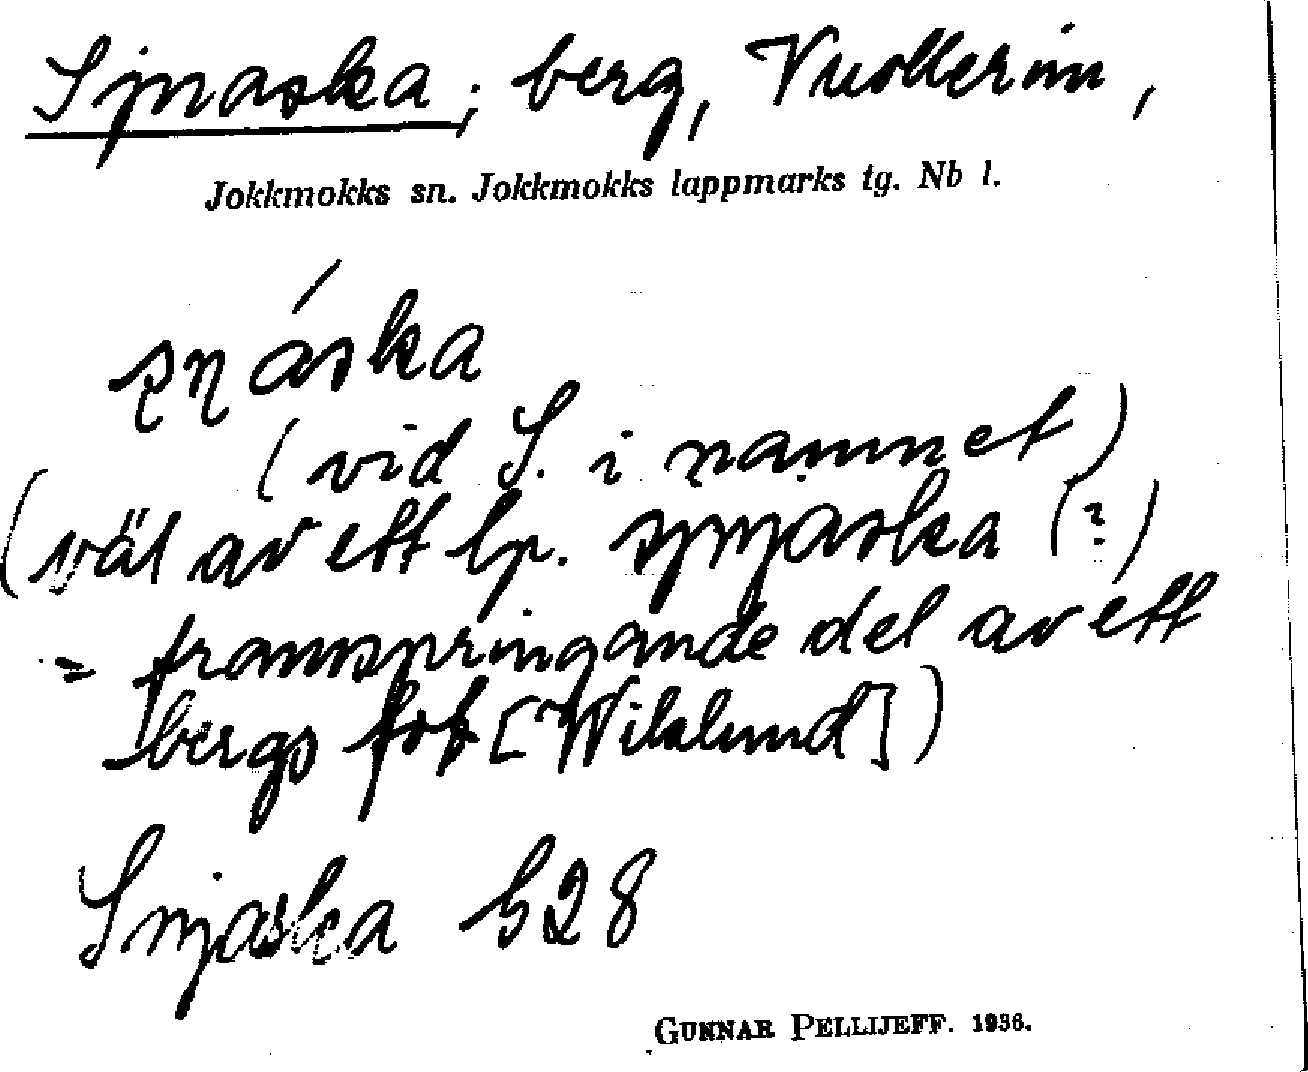 Sjnaska; berg, Vuollerim,
Jokkmokks sn. Jokkmokks lappmarks tg. Nb l.
snáska
(vid S. i namnet)
(väl av ett lp. spnjaska (?)
= framspringande del av ett
bergs fot [Wiklund])
Snjaska b28
GUNNAR PELLIJEFF. 1936.